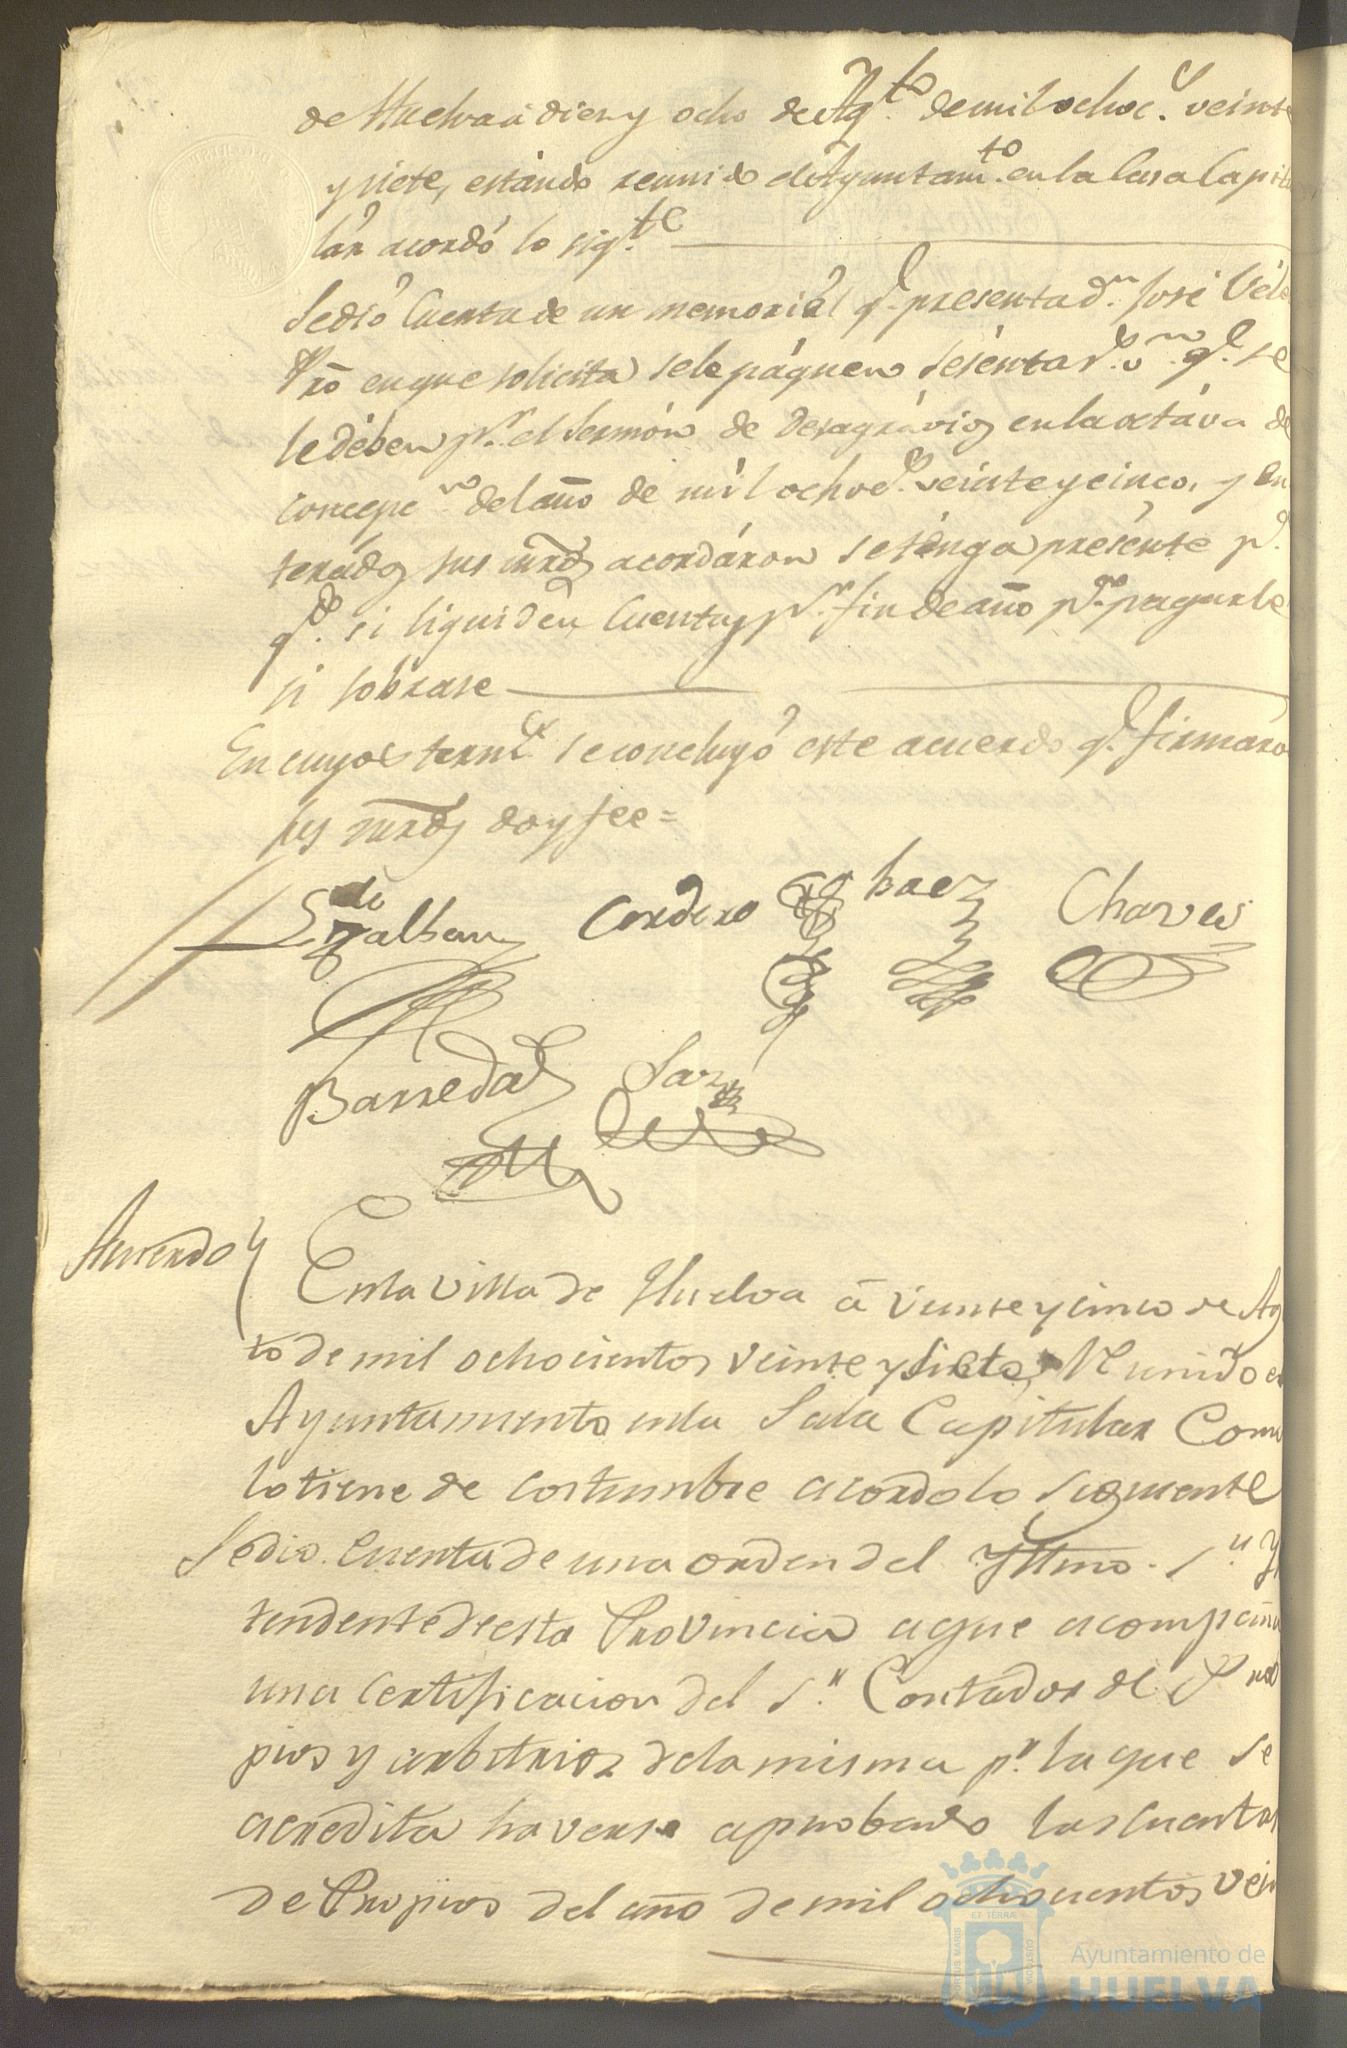 de Huelva á diez y ocho de Agto. de mil ochocs. veinte
y siete, estando reunido el Ayuntamto. en la Casa Capitu
lár acordó lo sigte.
Se dió Cuenta de un memoriál q. presenta dn. José Véle
Pro en que solicita se le páguen sesénta rs. vn. qe. se
le dében pr. el Sermón de Desagrávios en la octáva de
concepcn. del año de mil ochocs. veinte y cinco, y en
terádos sus mrds acordáron se ténga presénte pa.
qdo. se liquiden Cuentas pr. fin de año pa. pagarle
si sobrase
En cuyos terms. se concluyó este acuerdo q. firmaro
sus mrds doy fee =
Cordero
Baez
Chaves
Barreda
Saz
Acuerdo
En la Villa de Huelva á veinte y cinco de Ag
to de mil ochocientos veinte y siete, Reunido el
Ayuntamiento en la Sala Capitular Como
lo tiene de costumbre acordo lo siguiente
Se dio Cuenta de una orden del Yltmo. Sr. Yn
tendente de esta Provincia a que acompaña
una certificacion del Sr. Contador de Pro
pios y arbitrios de la misma pr. la que se
acredita haverse aprobado las Cuentas
de Propios del año de mil ochocientos vein
ET TERRAE
PORTUS MARIS
CUSTODIA
Ayuntamiento de
HUELVA